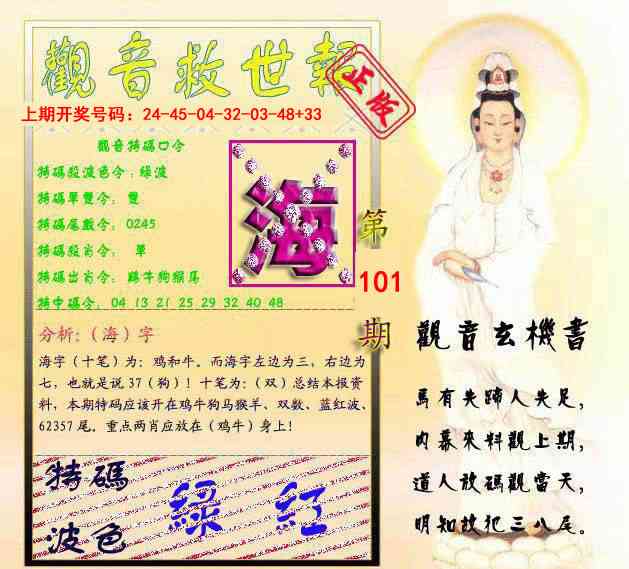 觀音救世報
正版
上期开奖号码：24-45-04-32-03-48+33
觀音特碼口令
特碼殺波色令：綠波
特碼單雙令：雙
特碼尾數令：0245
特碼殺肖令：單
特碼出肖令：雞牛狗猴馬
特中碼令：04 13 21 25 29 32 40 48
海
第
101
期
分析:（海）字
海字（十笔）为：鸡和牛。而海字左边为三，右边为
七，也就是说 37（狗）！十笔为：（双）总结本报资
料，本期特码应该开在鸡牛狗马猴羊、双数、蓝红波、
62357 尾。重点两肖应放在（鸡牛）身上！
特碼
波色
綠 紅
觀音玄機書
馬有失蹄人失足，
內幕來料觀上期，
道人放碼觀當天，
明知故犯三八尾。